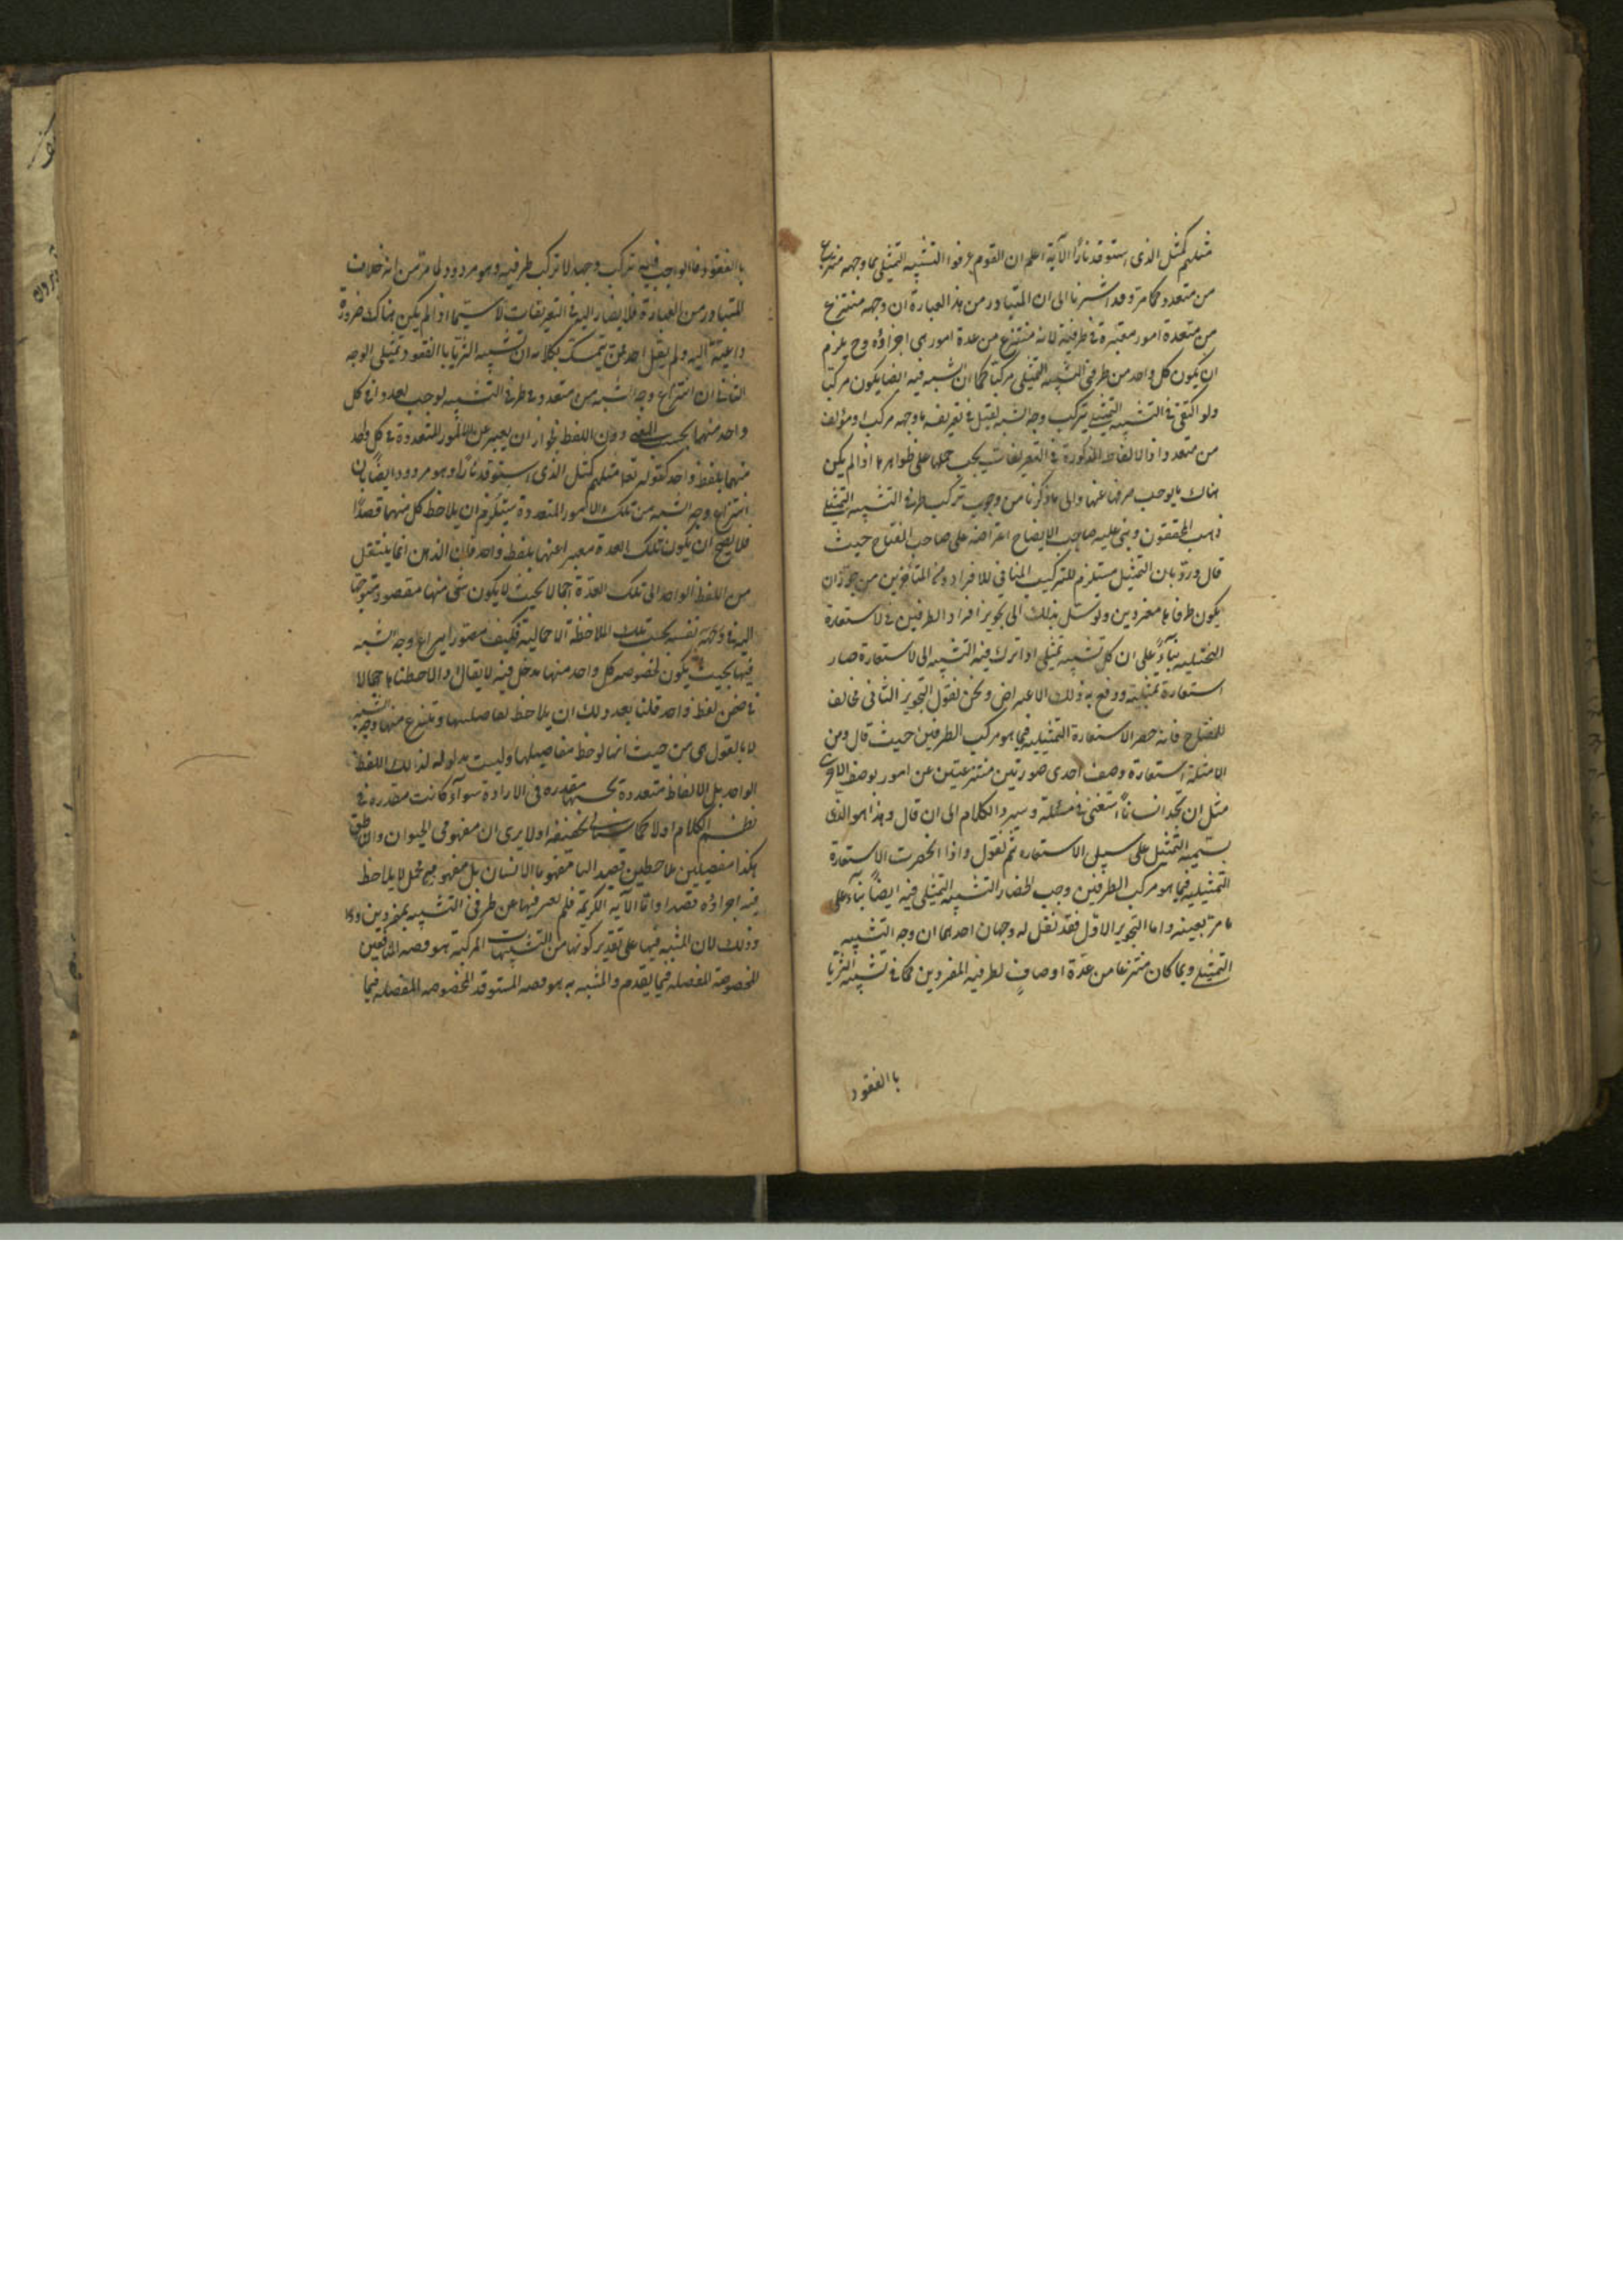 مثلهم كمثل الذى استوقد نارًا الآية اعلم ان القوم عرفوا التشبيه التمثيلى بما وجهه منتزع
من متعدد كما مرّ وقد اشرنا الى ان المتبادر من هذ العبارة ان وجهه منتزع
من متعددة امور معتبرة فى طرفيه لانه منتزع من عدة امور هى اجزاؤه وح يلزم
ان يكون كل واحد من طرفى التشبيه التمثيلى مركبا كما ان الشبه فيه ايضا يكون مركبا
ولو اكتفى فى التشبيه التمثيلى بتركيب وجه الشبه لقيل فى تعريفه ما وجهه مركب او مؤلف
من متعدد اذ الالفاظ المذكورة فى التعريفات يجب حملها على ظواهرها اذا لم يكن
هناك ما يوجب صرفها عنها والى ما ذكرنا من وجوب تركيب طرفى التشبيه التمثيلى
ذهب المحققون وبنى عليه صاحب الايضاح اعتراضه على صاحب المفتاح حيث
قال وردّ بان التمثيل مستلزم للتركيب المنافى للافراد ومن المتأخرين من جوّز ان
يكون طرفاه مفردين وتوسل بذلك الى تجويز افراد الطرفين فى الاستعارة
التمثيلية بناءً على ان كل تشبيه تمثيلى اذا ترك فيه التشبيه الى الاستعارة صار
استعارة تمثيلية ودفع به ذلك الاعتراض ونحن نقول التجويز الثانى مخالف
للمفتاح فانه حصر الاستعارة التمثيلية فيما هو مركب الطرفين حيث قال ومن
الامثلة استعارة وصف احدى صورتين منتزعتين عن امور بوصف الاخرى
مثل ان تجد انسانًا استفتى فى مسئلة وسرد الكلام الى ان قال وهذا هو الذى
يسمّيه التمثيل على سبيل الاستعاره ثم نقول واذا انحصرت الاستعارة
التمثيلية فيما هو مركب الطرفين وجب انحصار التشبيه التمثيلى فيه ايضًا بناءً على
ما مرّ بعينه واما التجويز الاوّل فقد نقل له وجهان احدهما ان وجه التشبيه
التمثيلى ربما كان منتزعا من عدّة اوصافٍ لطرفيه المفردين كما فى تشبيه الثريّا
باالعنقود
باالعنقود فالواجب فيه تركب وجهه لا تركب طرفيه وهو مردود لما مرّ من انه خلاف
المتبادر من العبارة فلا يصار اليه فى التعريفات لا سيّما اذا لم يكن هناك ضرورة
داعية اليه ولم يقل احد ممن يتمسك بكلامه ان تشبيه الثريّا باالعنقود تمثيلى الوجه
الثانى ان انتزاع وجه الشبه من متعدد فى طرفى التشبيه يوجب تعددا فى كل
واحد منهما بحسب المعنى دون اللفظ لجواز ان يعبر عن الامور المتعددة فى كل واحد
منهما بلفظ واحد كقوله تعا مثلهم كمثل الذى استوقد نارًا وهو مردود ايضًا بان
انتزاع وجه الشبه من تلك الامور المتعددة يستلزم ان يلاحظ كل منهما قصدًا
فلا يصح ان يكون تلك العدة معبرا عنها بلفظ واحد فان الذهن انما ينتقل
من اللفظ الواحد الى تلك العدّة اجمالا بحيث لا يكون شئ منها مقصودا متوجّها
اليه فى وجهة نفسه بحسب تلك الملاحظة الاجمالية فكيف يتصور انتزاع وجه شبه
فيها بحيث يكون لخصوصه كل واحد منها مدخل فيه لا يقال اذا لاحظناها اجمالا
فى ضمن لفظ واحد فلنا بعد ذلك ان يلاحظ تفاصيلها وينتزع منها وجه الشبه
لانا نقول هى من حيث انها لوحظ تفاصيلها وليست مدلولة لذلك اللفظ
الواحد بل الالفاظ متعددة بحسبها مقدره فى الارادة سوآء كانت مقدره فى
نظم الكلام اولا كما ستحققه اولا يرى ان مفهومى الحيوان والناطق
هكذا مفصلين ملاحظين قصدا ليسا مفهوما الانسان بل مفهومه مجمل لا يلاحظ
فيه اجزاؤه قصدا واما الآية الكريمة فلم يعبر فيها عن طرفى التشبيه بمفردين
وذلك لان المشبه فيها على تقدير كونها من التشبيهات المركبة هو قصه المنافقين
المخصوصة المفصله فيما تقدم والمشبه به هو قصه المستوقد المخصوصه المفصله فيما